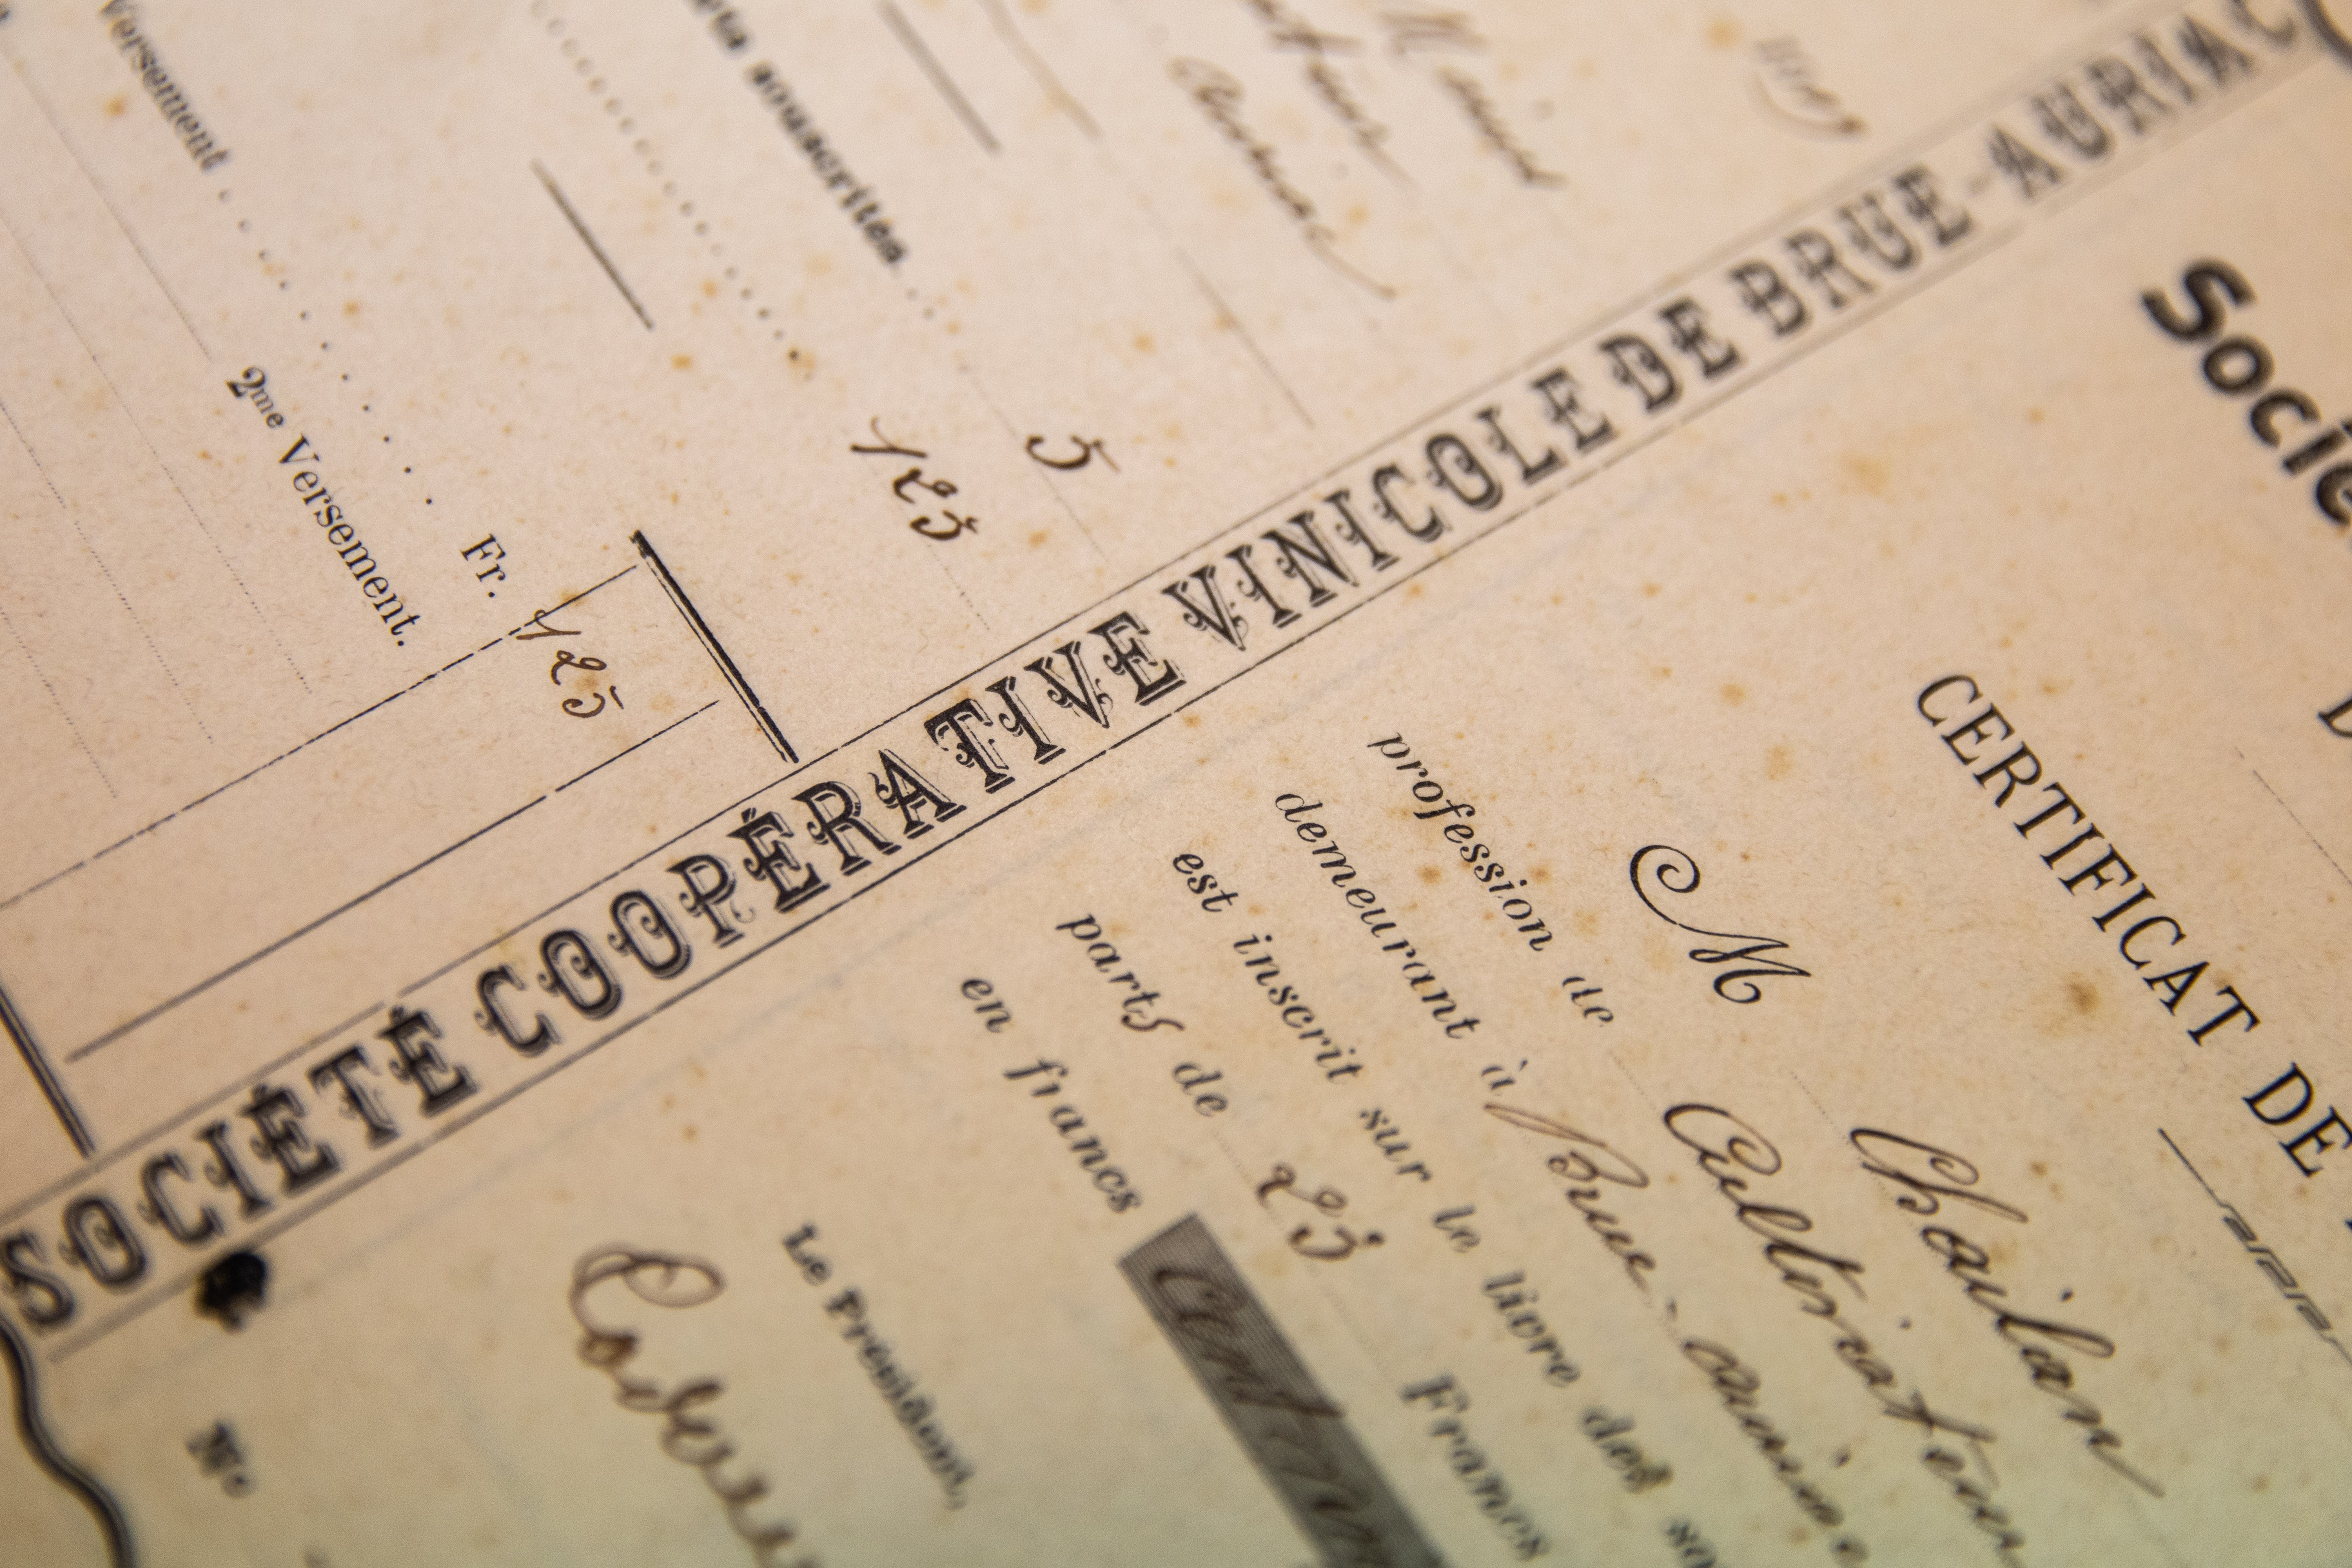 Versement
2me Versement.
Fr. 125
souscrites
5
125
SOCIÉTÉ COOPÉRATIVE VINICOLE DE BRUE-AURIAC
Socié
CERTIFICAT DE
M Chailan
profession de Cultivateur
demeurant à Brue
est inscrit sur le livre des
parts de 25 Francs
en francs Cent
Le Président,
N°